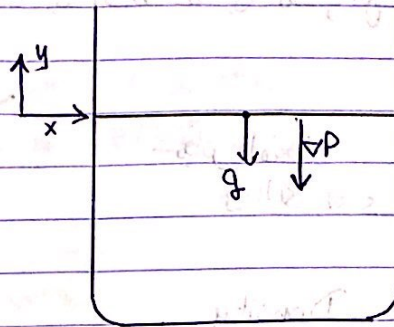 y
x
g
∇P